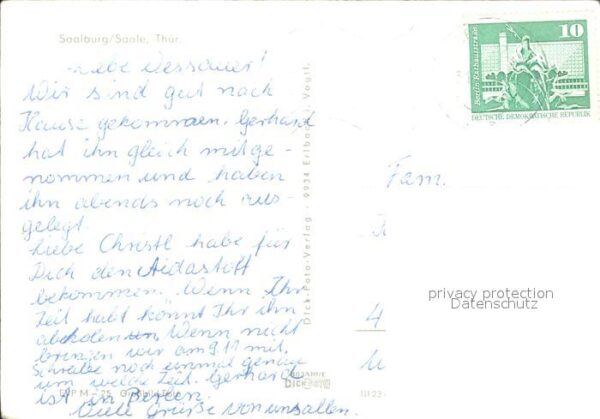 Saalburg/Saale, Thür.
Liebe Dessauer!
Wir sind gut nach
Hause gekommen. Gerhard
hat ihn gleich mitge-
nommen und haben
ihn abends noch aus-
gelegt.
Liebe Christl habe für
Dich den Aidastoff
bekommen. Wenn Ihr
Zeit habt könnt Ihr ihn
abholen. Wenn nicht
bringen wir am 9.11 mit.
Schreibe noch einmal genau
um welche Zeit. Gerhard
ist in Berlin.
Viele Grüße von uns allen.
Dick-Foto-Verlag · 9934 Erlbach i. Vogtl.
10
Berlin, Rathausstraße
DEUTSCHE DEMOKRATISCHE REPUBLIK
Fam.
4
privacy protection
Datenschutz
EVP M -,25
DICK
III 23